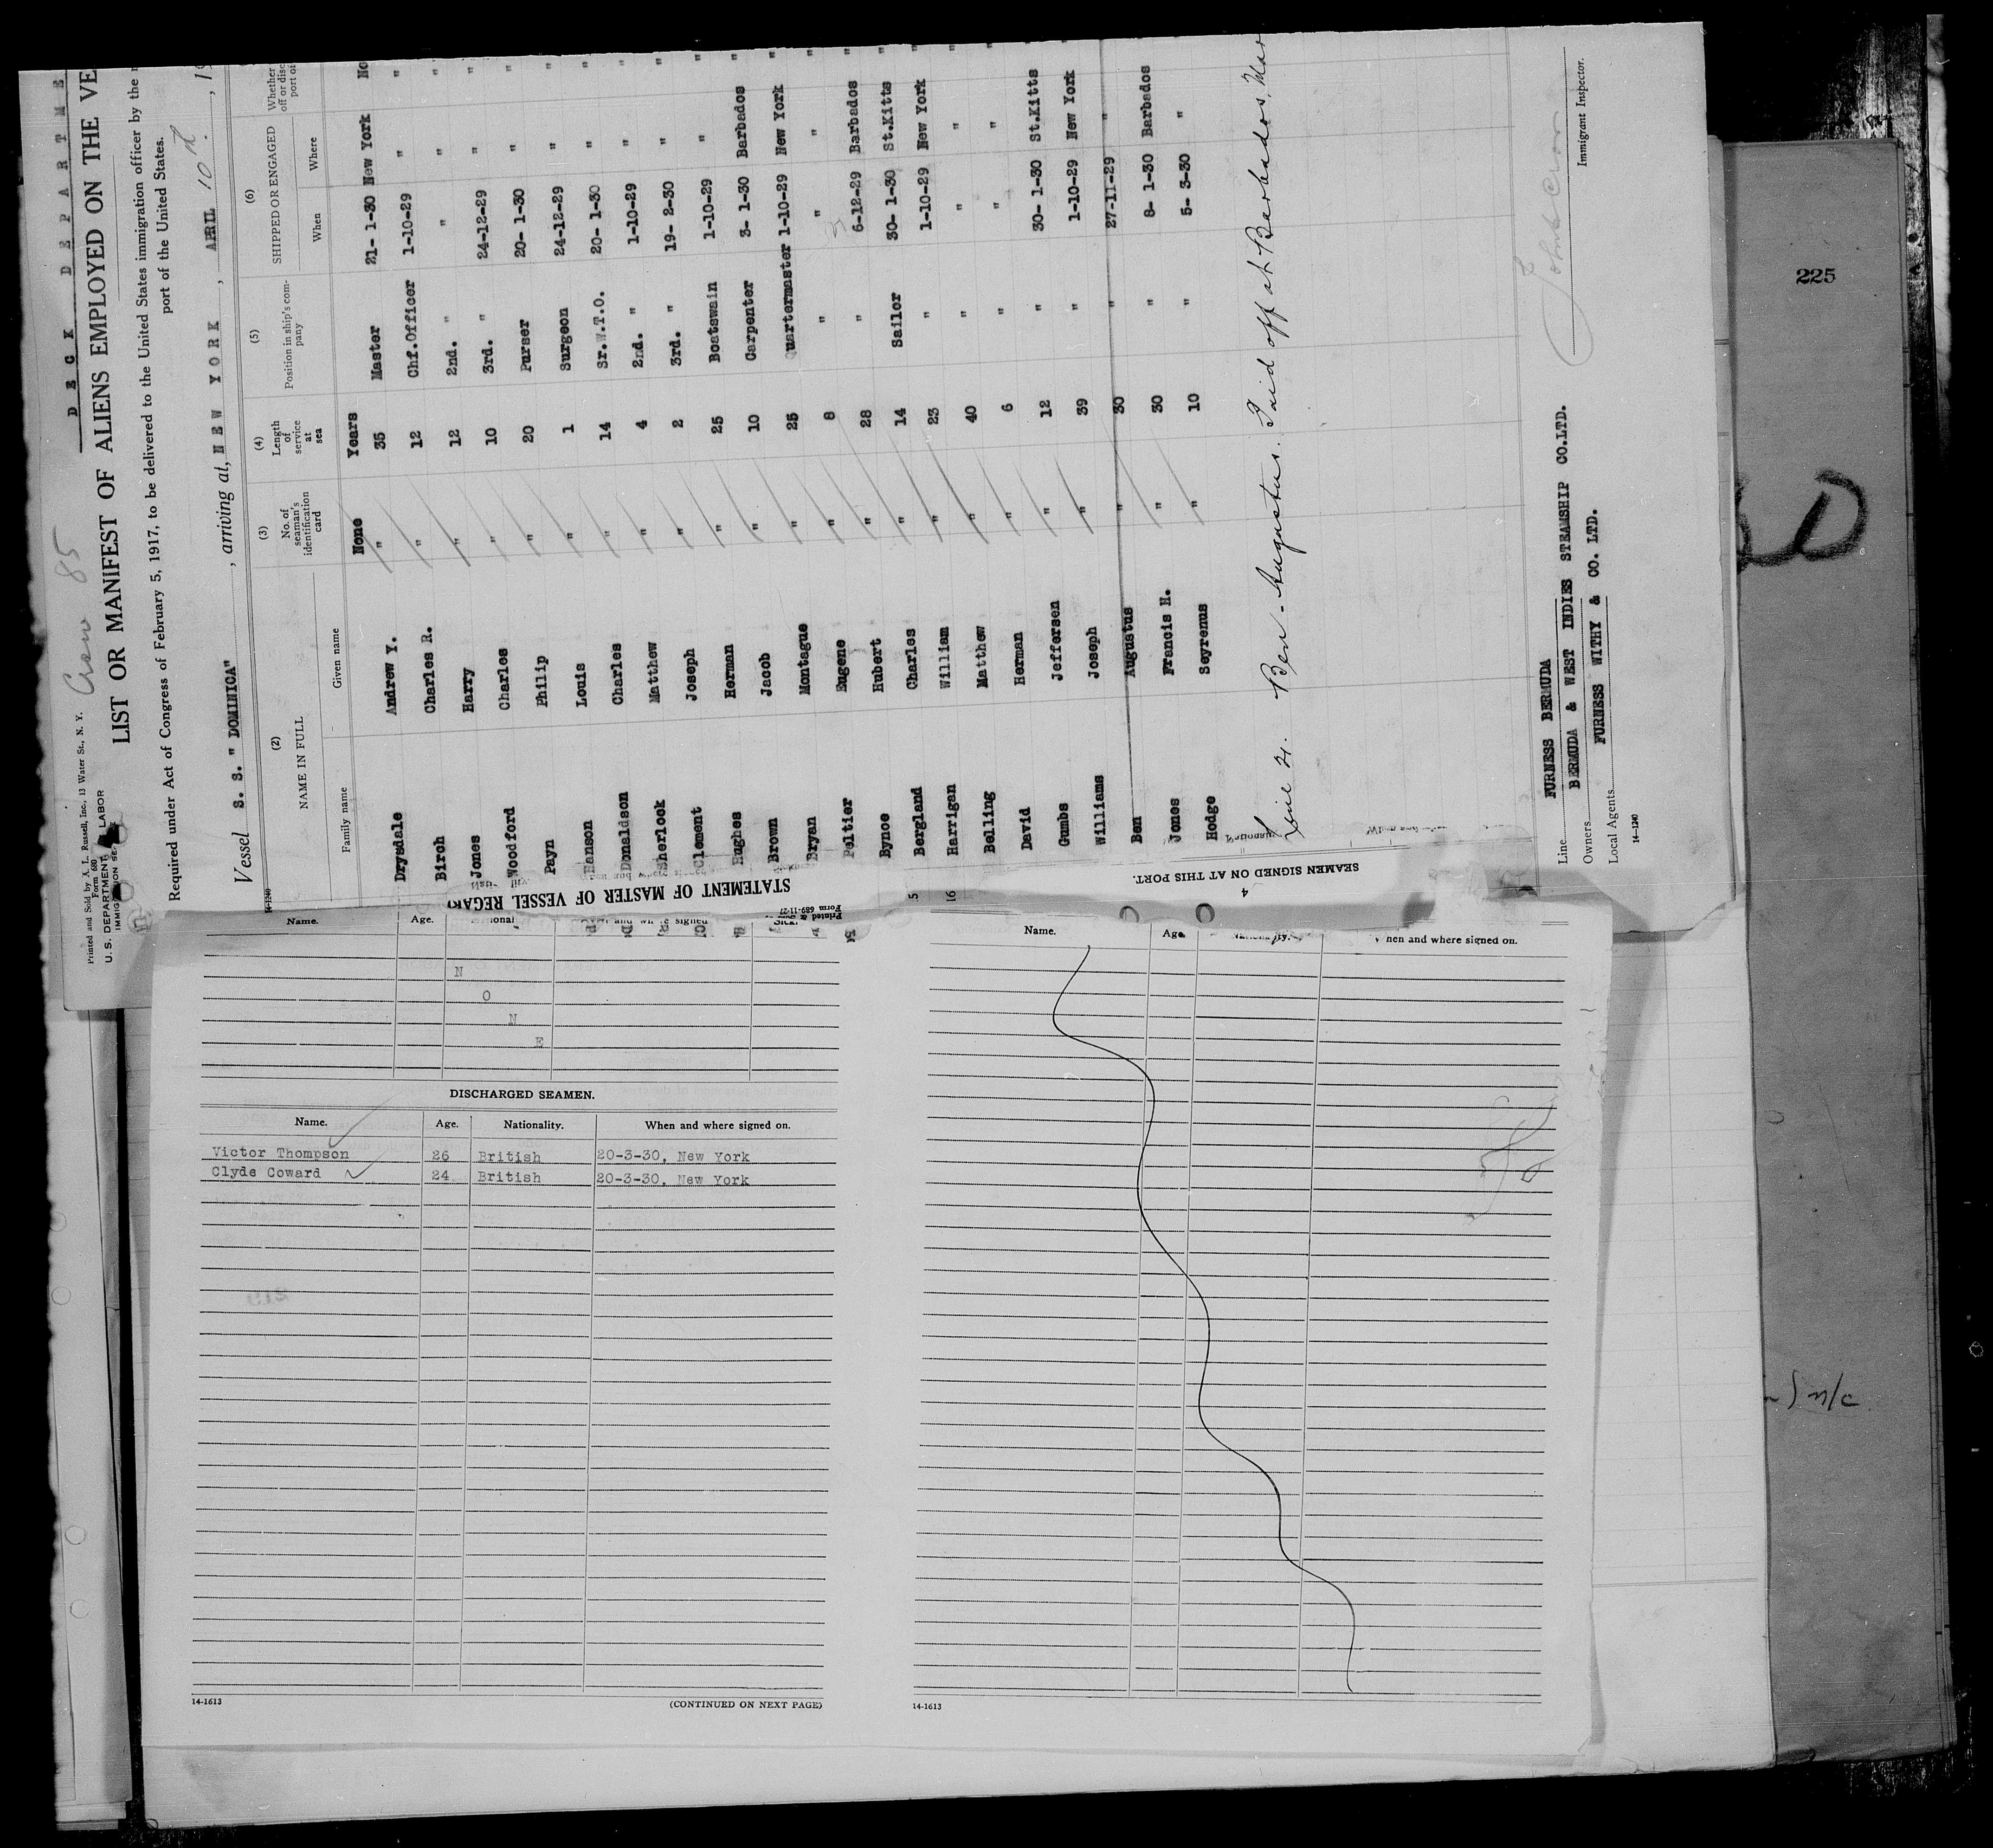 D E C K   D E P A R T M E
Printed and Sold by A. L. Russell, Inc., 13 Water St., N. Y.
Form 680
U. S. DEPARTMENT LABOR
Crew 85
LIST OR MANIFEST OF ALIENS EMPLOYED ON THE VE
Required under Act of Congress of February 5, 1917, to be delivered to the United States immigration officer by the
port of the United States.
Vessel S. S. " DOMINICA" , arriving at, N E W   Y O R K , APRIL 10th , 19
14-1240
(2) (3) (4) (5) (6)
NAME IN FULL No. of seaman's identification card Length of service at sea Position in ship's company SHIPPED OR ENGAGED Whether
Family name Given name When Where
None Years
Drysdale Andrew Y. " 35 Master 21- 1-30 New York No
Birch Charles R. " 12 Chf.Officer 1-10-29 " "
Jones Harry " 12 2nd. " " " "
Woodford Charles " 10 3rd. " 24-12-29 " "
Payn Philip " 20 Purser 20- 1-30 " "
Hanson Louis " 1 Surgeon 24-12-29 " "
Donaldson Charles " 14 Sr.W.T.O. 20- 1-30 " "
Sherlock Matthew " 4 2nd. " 1-10-29 " "
Clement Joseph " 2 3rd. " 19- 2-30 " "
Hughes Herman " 25 Boatswain 1-10-29 " "
Brown Jacob " 10 Carpenter 3- 1-30 Barbados "
Bryan Montague " 25 Quartermaster 1-10-29 New York "
Peltier Eugene " 8 " " "
Bynoe Hubert " 28 " 6-12-29 Barbados "
Bergland Charles " 14 Sailor 30- 1-30 St.Kitts "
Harrigan William " 23 " 1-10-29 New York "
Belling Matthew " 40 " " " "
David Herman " 6 " " " "
Gumbs Jeffersen " 12 " 30- 1-30 St.Kitts "
Williams Joseph " 39 " 1-10-29 New York "
Ben Augustus " 30 " 27-11-29 "
Jones Francis H. " 30 " 8- 1-30 Barbados
Hodge Seyrenus " 10 " 5- 3-30 "
Line 21. Ben - Augustus. Paid off at Barbados, Mar
Line FURNESS BERMUDA
Owners BERMUDA & WEST INDIES STEAMSHIP CO.LTD.
Local Agents FURNESS WITHY & CO. LTD.
14-1240
Immigrant Inspector.
225
STATEMENT OF MASTER OF VESSEL REGAR
Form 689-11-27
Name. Age. when signed
N
O
N
E
DISCHARGED SEAMEN.
Name. Age. Nationality. When and where signed on.
Victor Thompson 26 British 20-3-30, New York
Clyde Coward 24 British 20-3-30, New York
14-1613
(CONTINUED ON NEXT PAGE)
4
SEAMEN SIGNED ON AT THIS PORT.
Name. Age. Nationality. When and where signed on.
14-1613